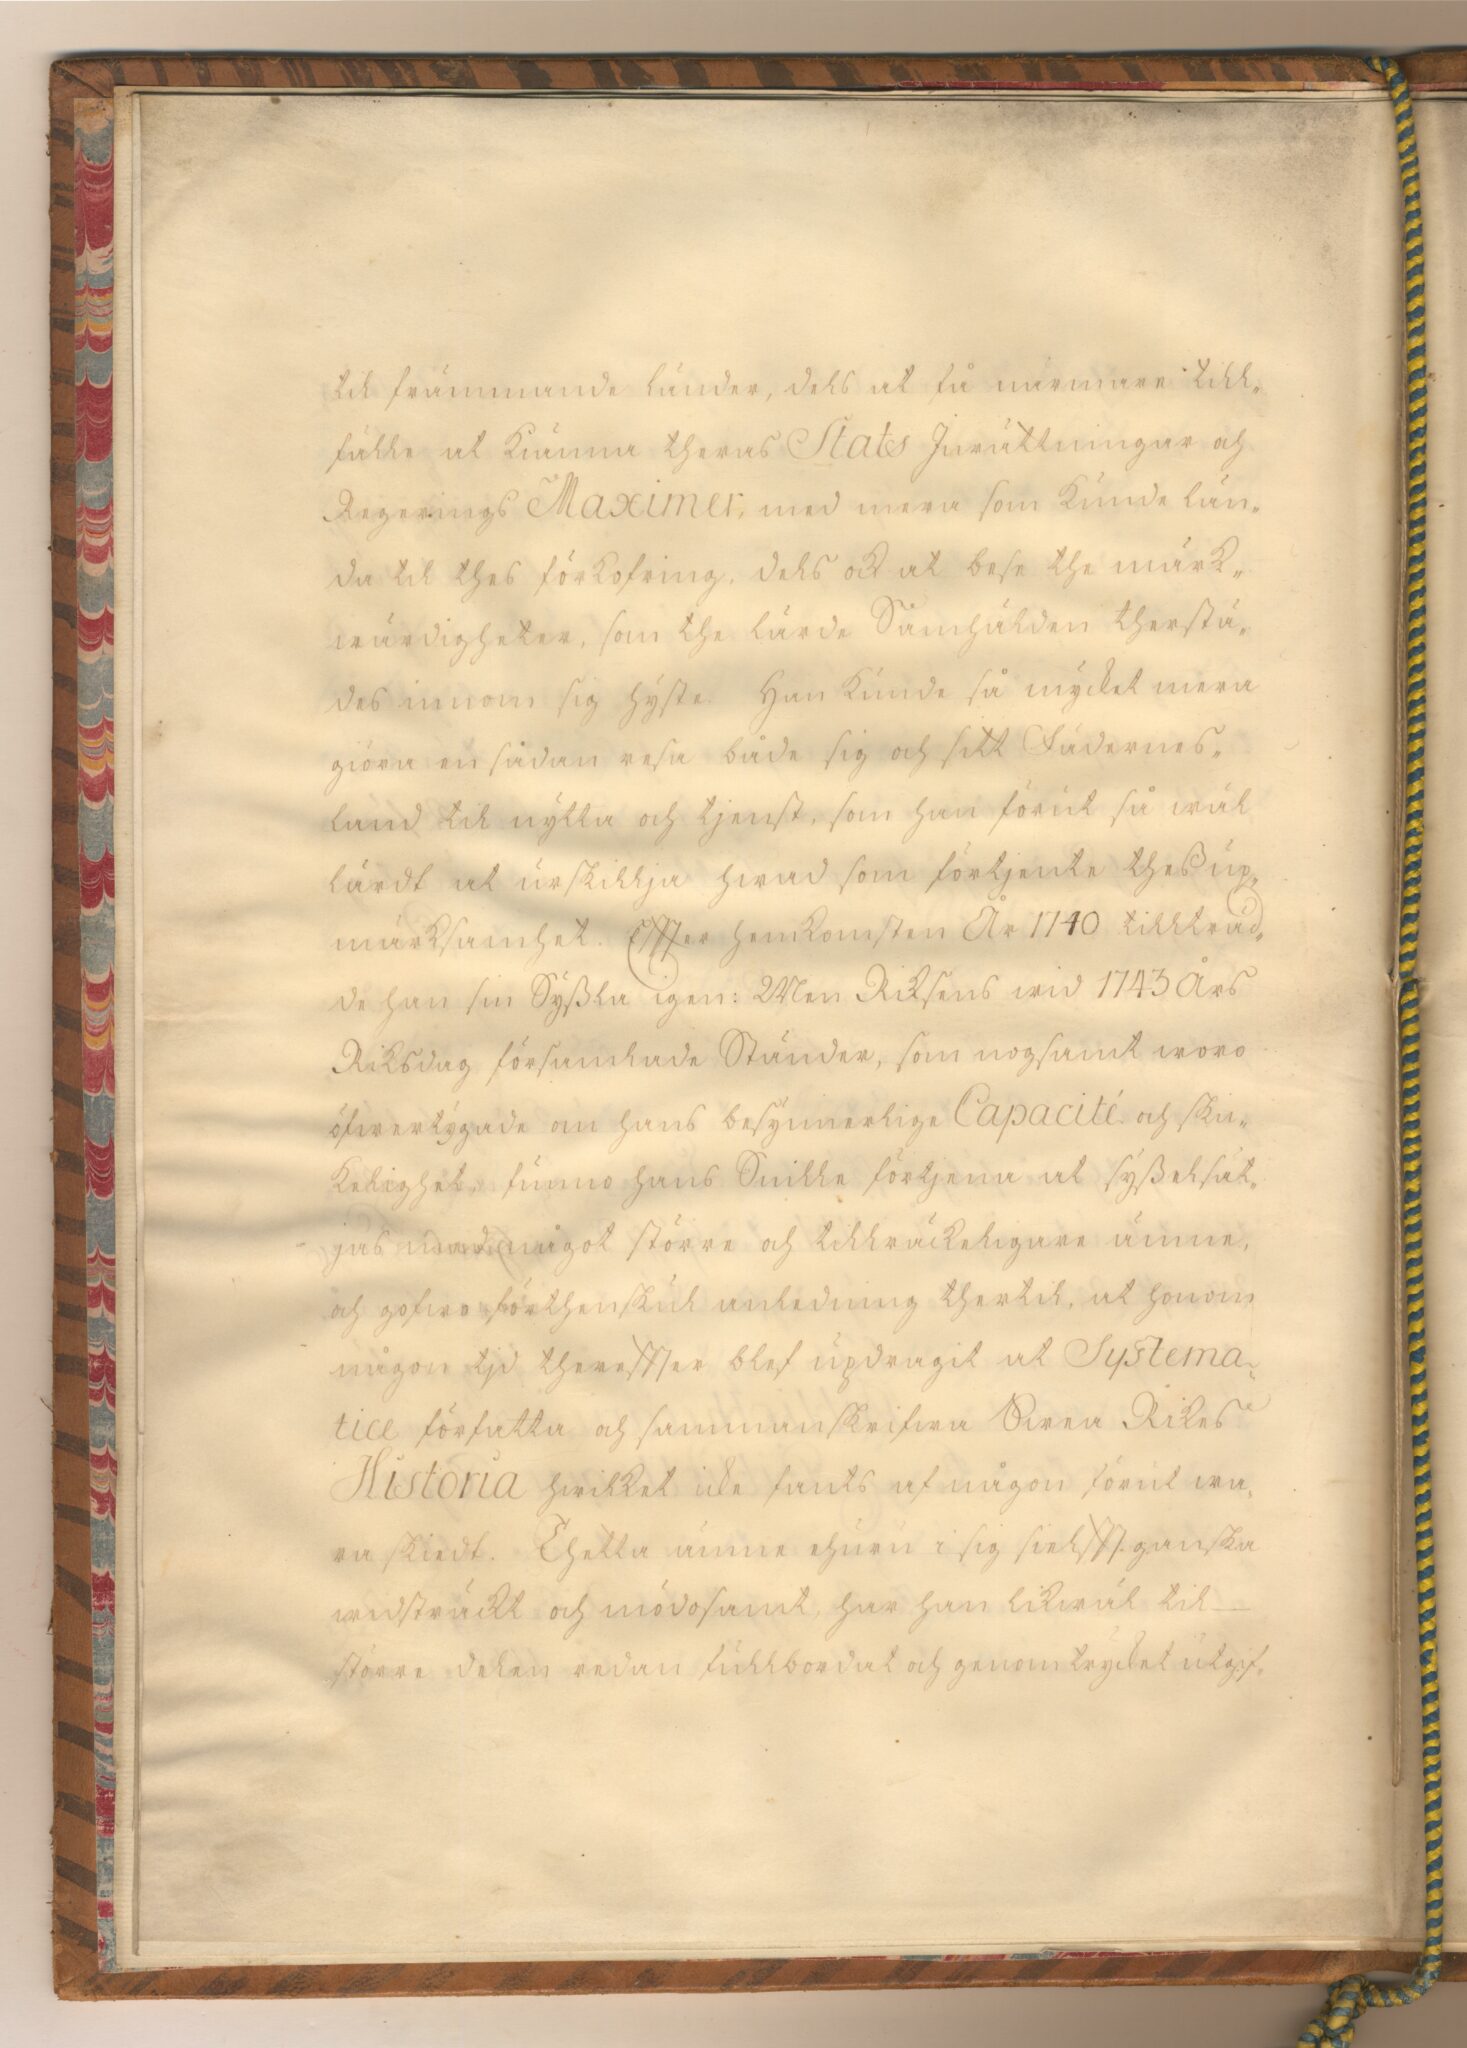 til främmande länder, dels at få närmare till-
fälle at Känna theras Stats Jnrättningar och
Regerings Maximer, med mera som Kunde län-
da til thes förkofring, dels ock at bese the märk-
wärdigheter, som the lärde Samhälden therstä-
des innom sig hyste. Han Kunde så mycket mera
giöra en sådan resa både sig och sitt Fädernes-
land til nytta och tjenst, som han förut så wäl
lärdt at urskillja hwad som förtjente theß up-
märksamhet. Effter hemkomsten År 1740 tillträd-
de han sin Syßla igen: Men Riksens wid 1743 Års
Riksdag församlade Ständer, som nogsamt woro
öfwertygade om hans besynnerlige Capacité och ski-
kelighet, funno hans Snille förtjena at syßelsät-
jas med något större och tillräckeligare ämne,
och gofwo förthenskul anledning thertil, at honom
någon tjd thereffter blef updragit at Systema-
tice författa och sammanskrifwa Swea Rikes
Historia hwilket icke fants af någon förut wa-
ra skiedt. Thetta ämne ehuru i sig sielfft ganska
widsträckt och mödosamt, har han likwäl til
större delen redan fullbordat och genom trycket utgif-